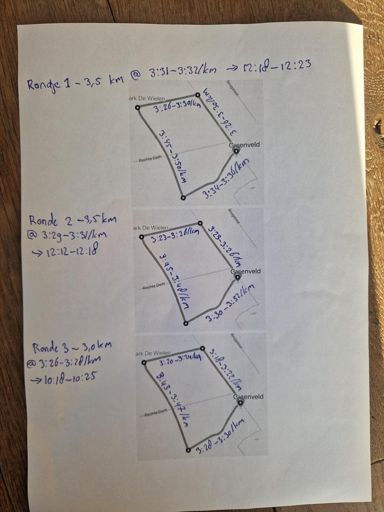 Rondje 1 - 3,5 km @ 3:31-3:32/km → 12:18-12:23
ark De Wielen
3:26-3:30/km
3:26-3:30/km
3:45-3:50/km
Rechte Diem
Groenveld
3:34-3:36/km
Ronde 2 - 3,5 km
@ 3:29-3:31/km
→ 12:12-12:18
ark De Wielen
3:23-3:26/km
3:23-3:26/km
3:45-3:48/km
Groenveld
3:30-3:32/km
Ronde 3 - 3,0 km
@ 3:26-3:28/km
→ 10:18-10:25
ark De Wielen
3:20-3:24/km
3:18-3:22/km
3:43-3:47/km
Groenveld
3:28-3:30/km